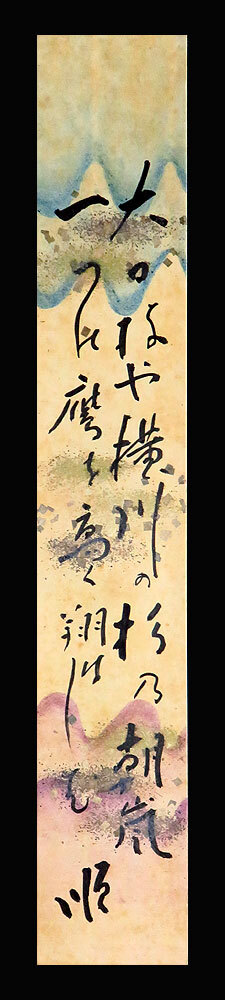 大日枝や横川の杉乃朝嵐
一つの鷹を高く翔けしむ
順